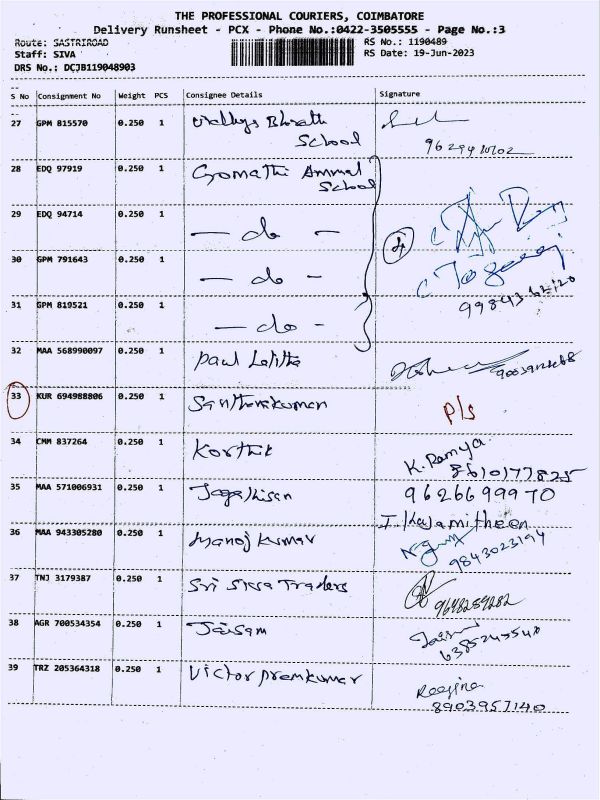 THE PROFESSIONAL COURIERS, COIMBATORE
Delivery Runsheet - PCX - Phone No.:0422-3505555 - Page No.:3
Route: SASTRIROAD
RS No.: 1190489
Staff: SIVA
RS Date: 19-Jun-2023
DRS No.: DCJB119048903
S No Consignment No Weight PCS Consignee Details Signature
27 GPM 815570 0.250 1 Vidhya Bharathi
School
28 EDQ 97919 0.250 1 Gomathi Ammal
School
29 EDQ 94714 0.250 1 — do —
4
30 GPM 791643 0.250 1 — do -
31 GPM 819521 0.250 1 — do -
32 MAA 568990097 0.250 1 Paul Lalitha
33 KUR 694988806 0.250 1 Santhanakumar P/s
34 CMM 837264 0.250 1 Karthik K. Ramya
8610177825
35 MAA 571006931 0.250 1 Jagathisan 9626699970
36 MAA 943305280 0.250 1 Manoj Kumar
9843023194
37 TNJ 3179387 0.250 1 Sri Siva Traders
38 AGR 700534354 0.250 1 Jaisam
39 TRZ 205364318 0.250 1 Victor Premkumar Reegina
8903957140